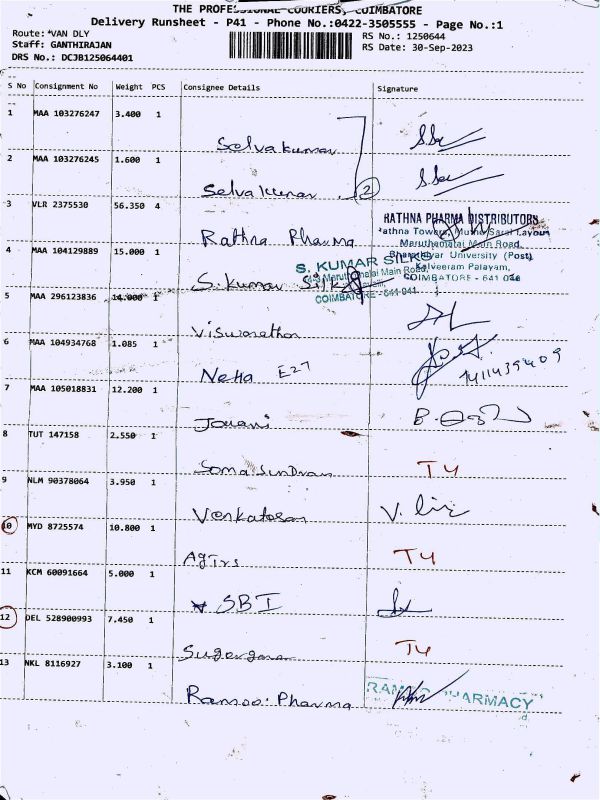 THE PROFESSIONAL COURIERS, COIMBATORE
Delivery Runsheet - P41 - Phone No.:0422-3505555 - Page No.:1
Route:*VAN DLY RS No.: 1250644
Staff: GANTHIRAJAN RS Date: 30-Sep-2023
DRS No.: DCJB125064401
S No Consignment No Weight PCS Consignee Details Signature
1 MAA 103276247 3.400 1
Selvakumar
2 MAA 103276245 1.600 1
Selvakumar 2
3 VLR 2375530 56.350 4
RATHNA PHARMA DISTRIBUTORS
Rathna Pharma
Maruthamalai Main Road,
4 MAA 104129889 15.000 1
Bharathiyar University (Post)
S. KUMAR SILKS
Kalveeram Palayam,
Maruthamalai Main Road,
COIMBATORE - 641 046
S. Kumar Silks
COIMBATORE - 641 041
5 MAA 296123836 14.000 1
Viswanathan
6 MAA 104934768 1.085 1
Neha E27
7411439409
7 MAA 105018831 12.200 1
8 TUT 147158 2.550 1
T4
9 NLM 90378064 3.950 1
Venkatesan
10 MYD 8725574 10.800 1
T4
11 KCM 60091664 5.000 1
SBI
12 DEL 528900993 7.450 1
T4
13 NKL 8116927 3.100 1
PHARMACY
Pharma